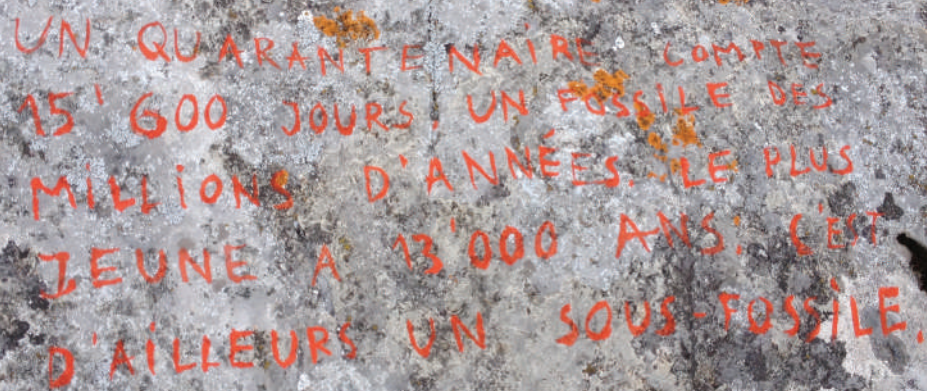 UN QUARANTENAIRE COMPTE
15'600 JOURS. UN FOSSILE DES
MILLIONS D'ANNÉES. LE PLUS
JEUNE A 13'000 ANS! C'EST
D'AILLEURS UN SOUS-FOSSILE.